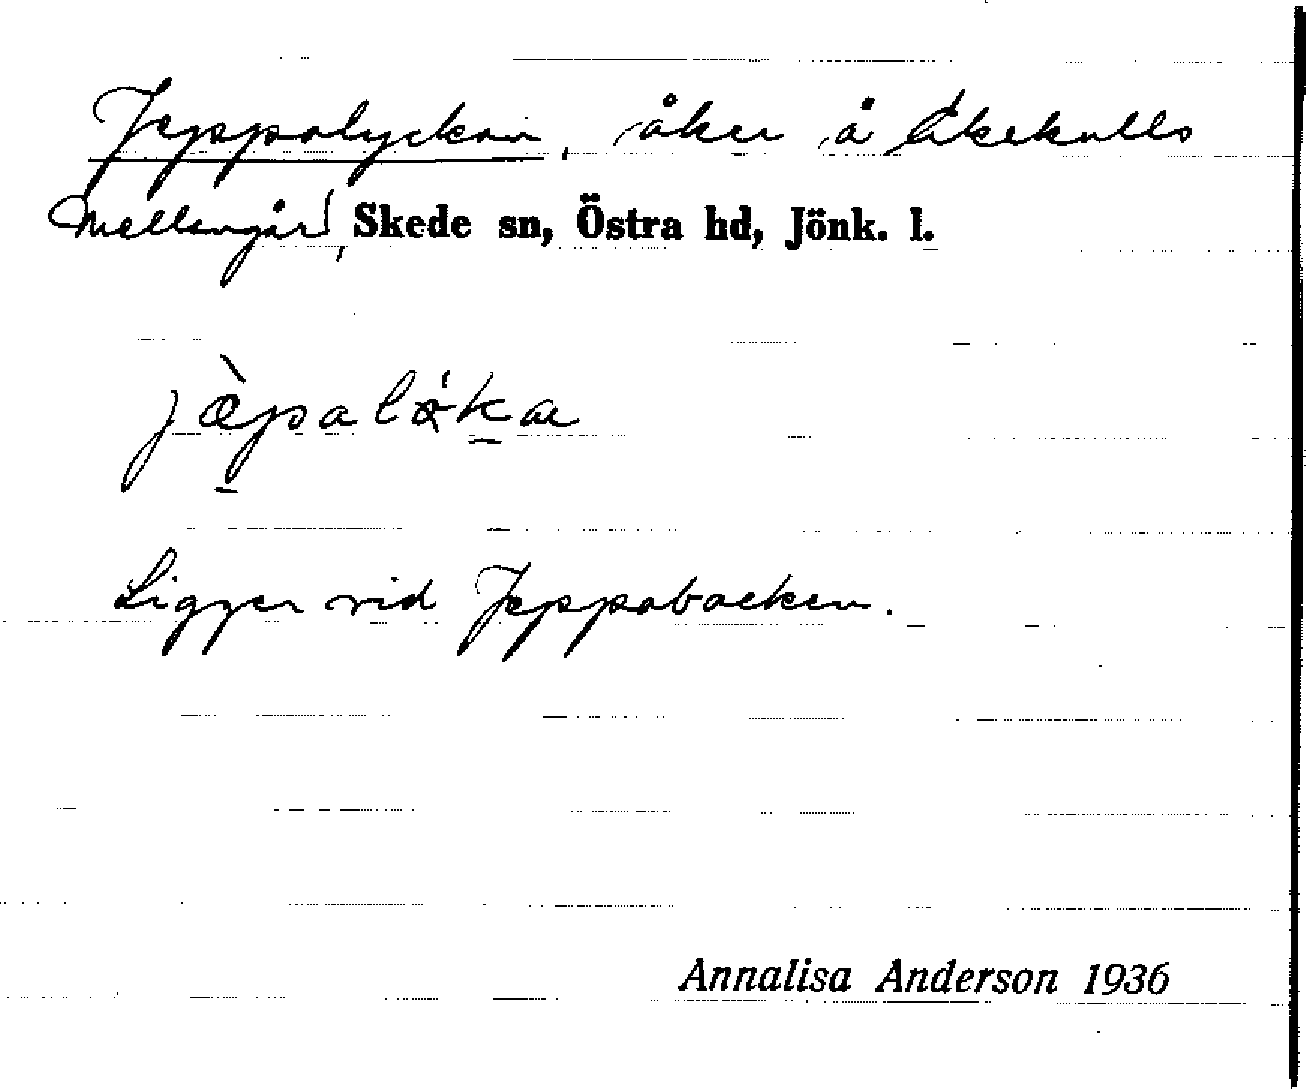 Jeppalyckan, åker å Åkekulls
Mellangård, Skede sn, Östra hd, Jönk. l.
jæ̀palø̀ka
Ligger vid Jeppabacken.
Annalisa Anderson 1936